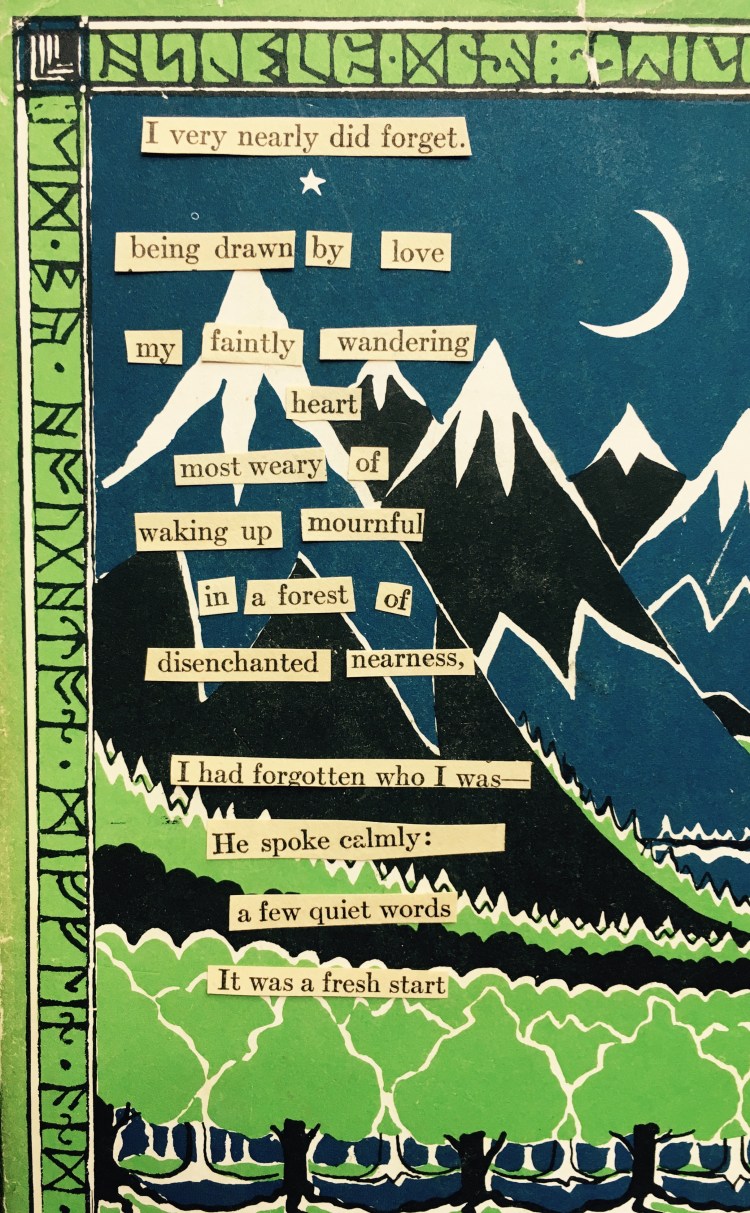 I very nearly did forget.
being drawn by love
my faintly wandering
heart
most weary of
waking up mournful
in a forest of
disenchanted nearness,
I had forgotten who I was—
He spoke calmly:
a few quiet words
It was a fresh start